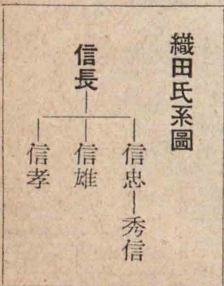 織田氏系圖
信長
信忠
秀信
信雄
信孝